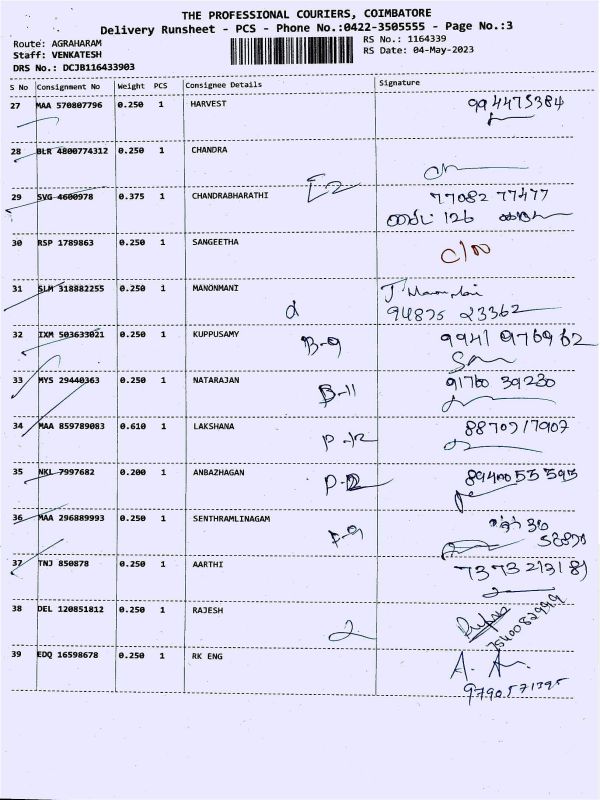 THE PROFESSIONAL COURIERS, COIMBATORE
Delivery Runsheet - PCS - Phone No.:0422-3505555 - Page No.:3
Route: AGRAHARAM RS No.: 1164339
Staff: VENKATESH RS Date: 04-May-2023
DRS No.: DCJB116433903
S No Consignment No Weight PCS Consignee Details Signature
27 MAA 570807796 0.250 1 HARVEST 994475384
28 BLR 4800774312 0.250 1 CHANDRA
29 SVG 4600978 0.375 1 CHANDRABHARATHI E-2 77082 77477
126
30 RSP 1789863 0.250 1 SANGEETHA
31 SLM 318882255 0.250 1 MANONMANI
d 94875 23362
32 IXM 503633021 0.250 1 KUPPUSAMY B-9 9941 976962
33 MYS 29440363 0.250 1 NATARAJAN B-11 91760 39230
34 MAA 859789083 0.610 1 LAKSHANA P-12 8870917907
35 NKL 7997682 0.200 1 ANBAZHAGAN 8940055595
36 MAA 296889993 0.250 1 SENTHRAMLINAGAM
37 TNJ 850878 0.250 1 AARTHI 7373213181
38 DEL 120851812 0.250 1 RAJESH 2 7540082999
39 EDQ 16598678 0.250 1 RK ENG
9790571395